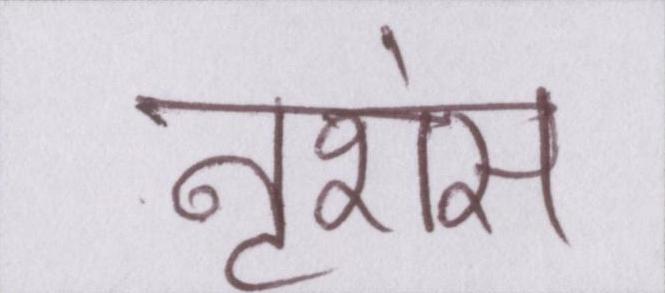 नृशंस